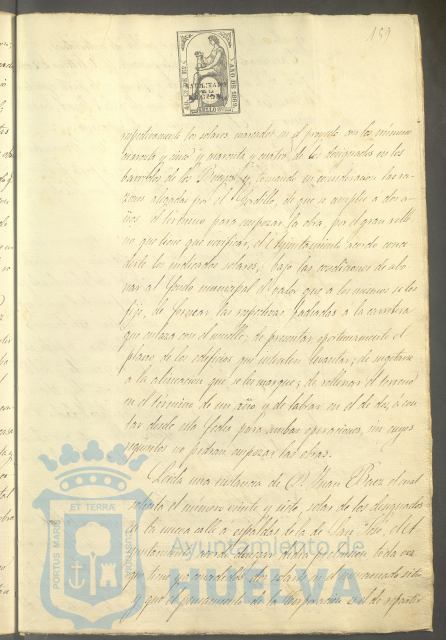 159
AÑO DE 1869.
respectivamente los solares marcados en el proyecto con los números
cuarenta y cinco y cuarenta y cuatro, de los designados en los
barrios de los y tomando en consideración las ra-
zones alegadas por el Gordillo, de que se amplíe a dos a-
ños el término para empezar la obra, por el gran relle-
no que tiene que verificar, el Ayuntamiento acordó conce-
derle los indicados solares, bajo las condiciones de abo-
nar al fondo municipal el valor que a los mismos se les
fije, de formar las respectivas fachadas a la carretera
que enlaza con el muelle; de presentar oportunamente el
plano de los edificios que intenten levantar; de sugetarse
a la alineacion que se les marque; de rellenar el terreno
en el término de un año y de labrar en el de dos, a con-
tar desde esta fecha para ambas operaciones, sin cuyos
requisitos no podran empezar las obras.
Leida una instancia de D. Juan Perez el cual
solicita el número veinte y siete, solar de los designados
en la nueva calle a espaldas de la de San José, el A-
yuntamiento acordó
que tiene ya concedidos dos solares en el
y que el pensamiento de la Corporación es el de repartir
PORTUS MARIS
ET TERRÆ
CUSTODIA
Ayuntamiento de
HUELVA